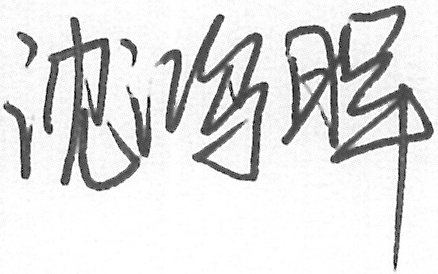 沈鸿晖